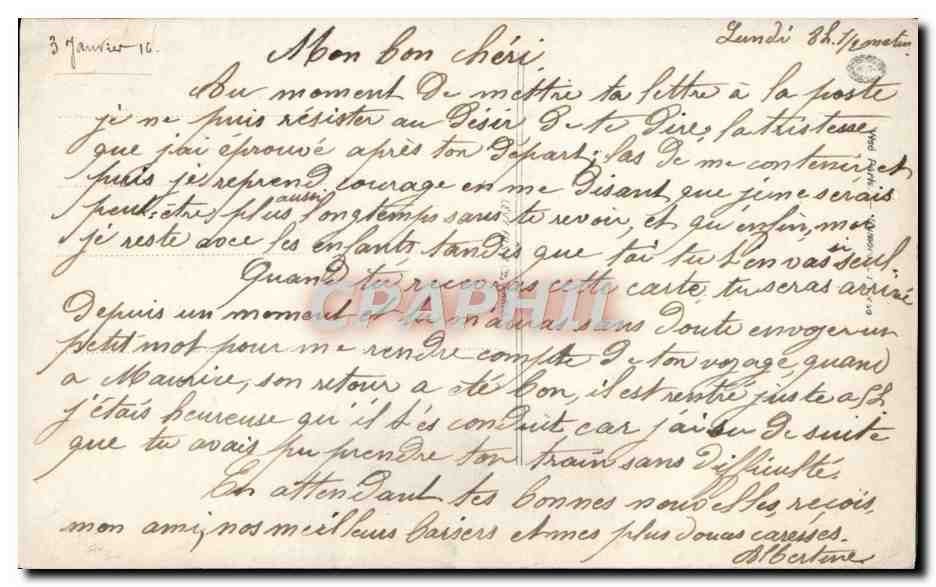 3 Janvier 16.
Lundi 8h. 1/2 matin
Mon bon chéri,
Au moment de mettre ta lettre à la poste
je ne puis résister au désir de te dire, la tristesse
que j'ai éprouvé après ton départ; las de me contenir et
puis je reprend courage en me disant que je me serais
peut-être plus aussi longtemps sans te revoir, et qu'enfin, moi
je reste avec les enfants, tandis que toi tu t'en vas seul.
Quand tu recevras cette carte, tu seras arrivé
depuis un moment et tu m'auras sans doute envoyer un
petit mot pour me rendre compte de ton voyage, quand
a Maurice, son retour a été bon, il est rentré juste a 5h
j'étais heureuse qu'il t'es conduit car j'ai su de suite
que tu avais pu prendre ton train sans difficulté.
En attendant tes bonnes nouvelles, reçois,
mon ami, nos meilleurs baisers et mes plus douces caresses.
Albertine
CPARHII